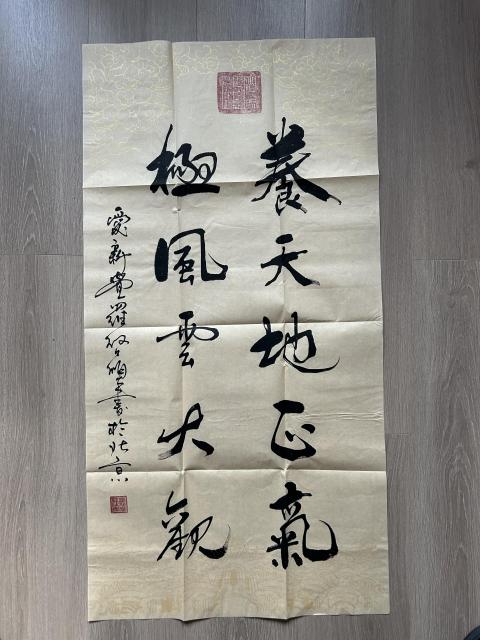 養天地正氣
極風雲大觀
愛新覺羅 書於北京